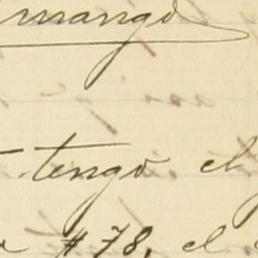 mango
tengo el
#78, el